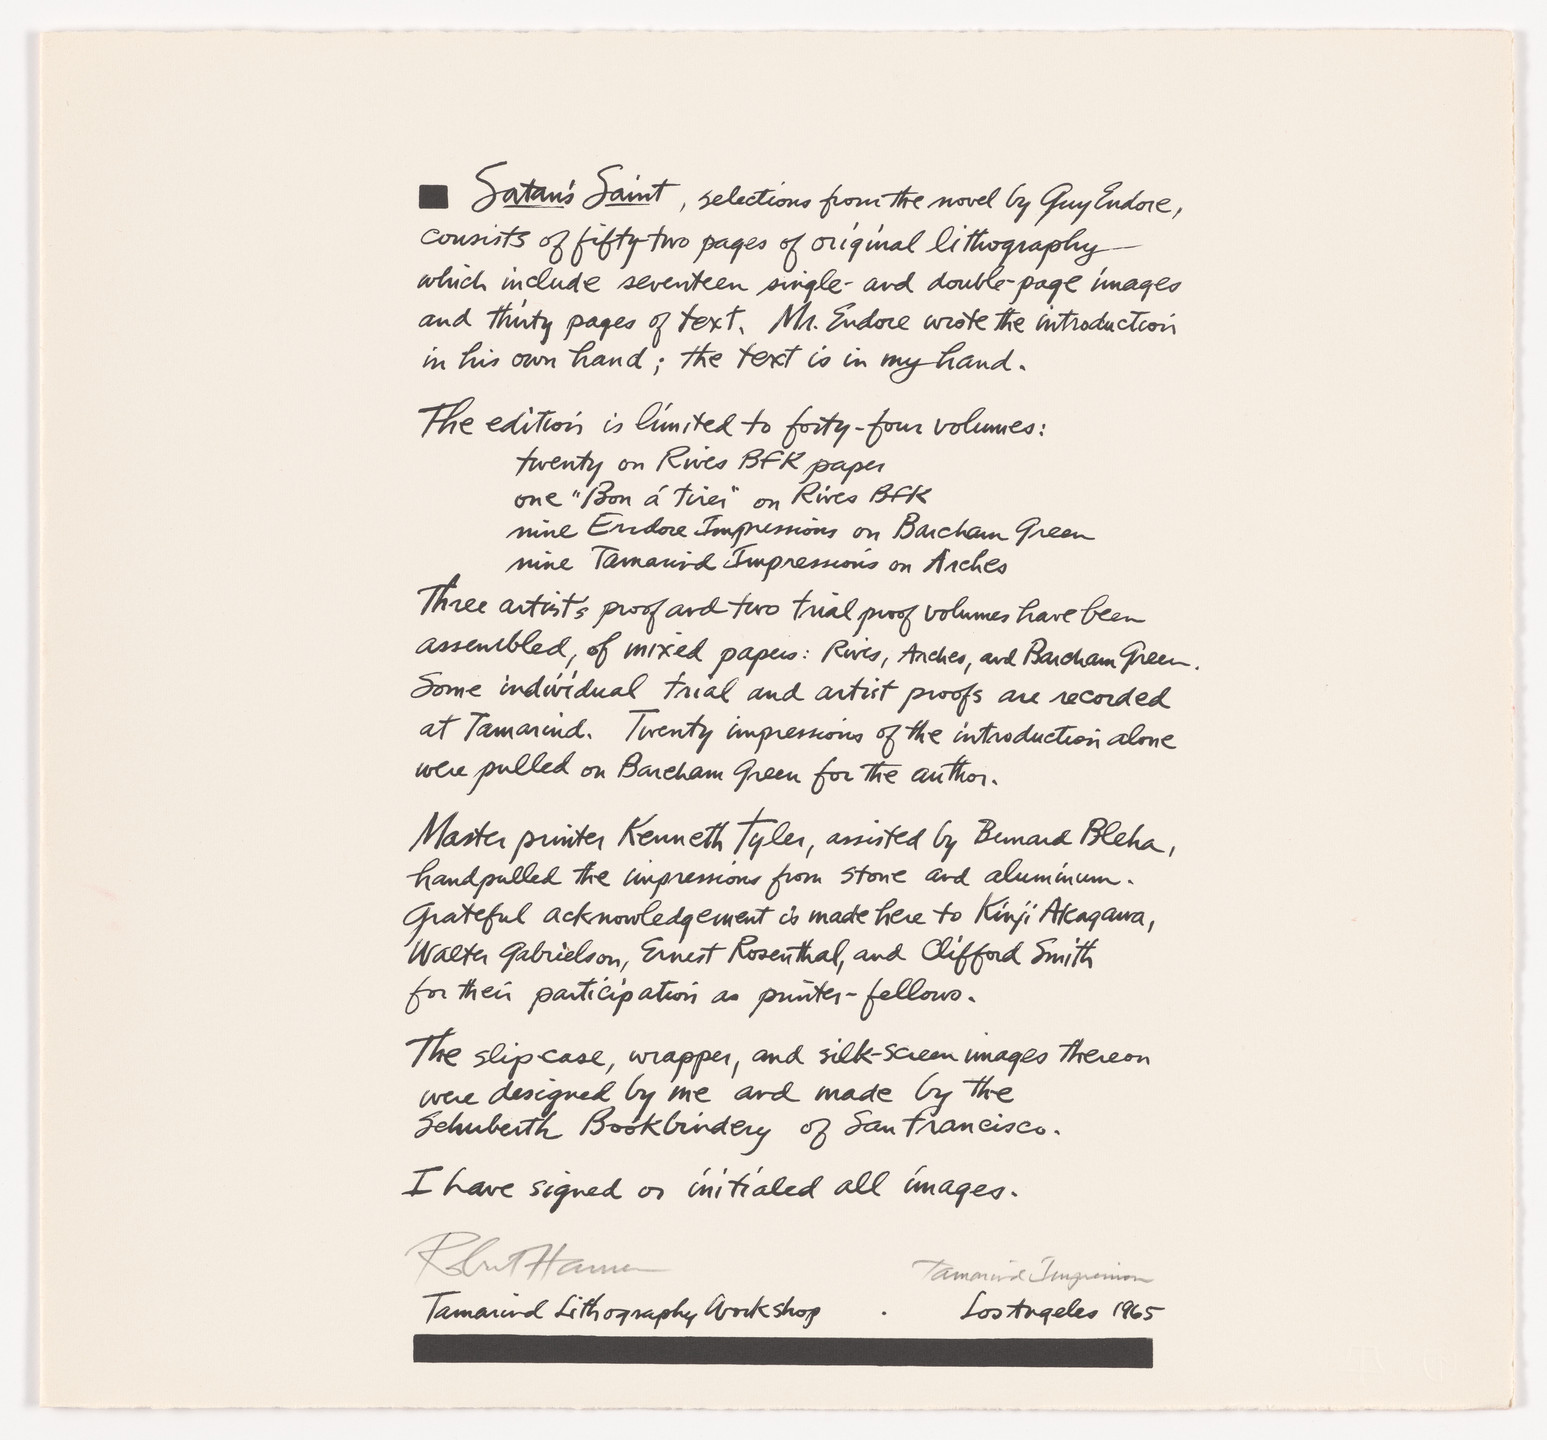 Satan's Saint, selections from the novel by Guy Endore,
consists of fifty-two pages of original lithography—
which include seventeen single- and double-page images
and thirty pages of text. Mr. Endore wrote the introduction
in his own hand; the text is in my hand.
The edition is limited to forty-four volumes:
twenty on Rives BFK paper
one "Bon á Tirer" on Rives BFK
nine Endore Impressions on Barcham Green
nine Tamarind Impressions on Arches
Three artist's proof and two trial proof volumes have been
assembled, of mixed papers: Rives, Arches, and Barcham Green.
Some individual trial and artist proofs are recorded
at Tamarind. Twenty impressions of the introduction alone
were pulled on Barcham Green for the author.
Master printer Kenneth Tyler, assisted by Bernard Bleha,
handpulled the impressions from stone and aluminum.
Grateful acknowledgement is made here to Kinji Akagawa,
Walter Gabrielson, Ernest Rosenthal, and Clifford Smith
for their participation as printer-fellows.
The slip-case, wrapper, and silk-screen images thereon
were designed by me and made by the
Schuberth Bookbindery of San Francisco.
I have signed or initialed all images.
Robert Hansen Tamarind Impression
Tamarind Lithography Workshop . Los Angeles 1965